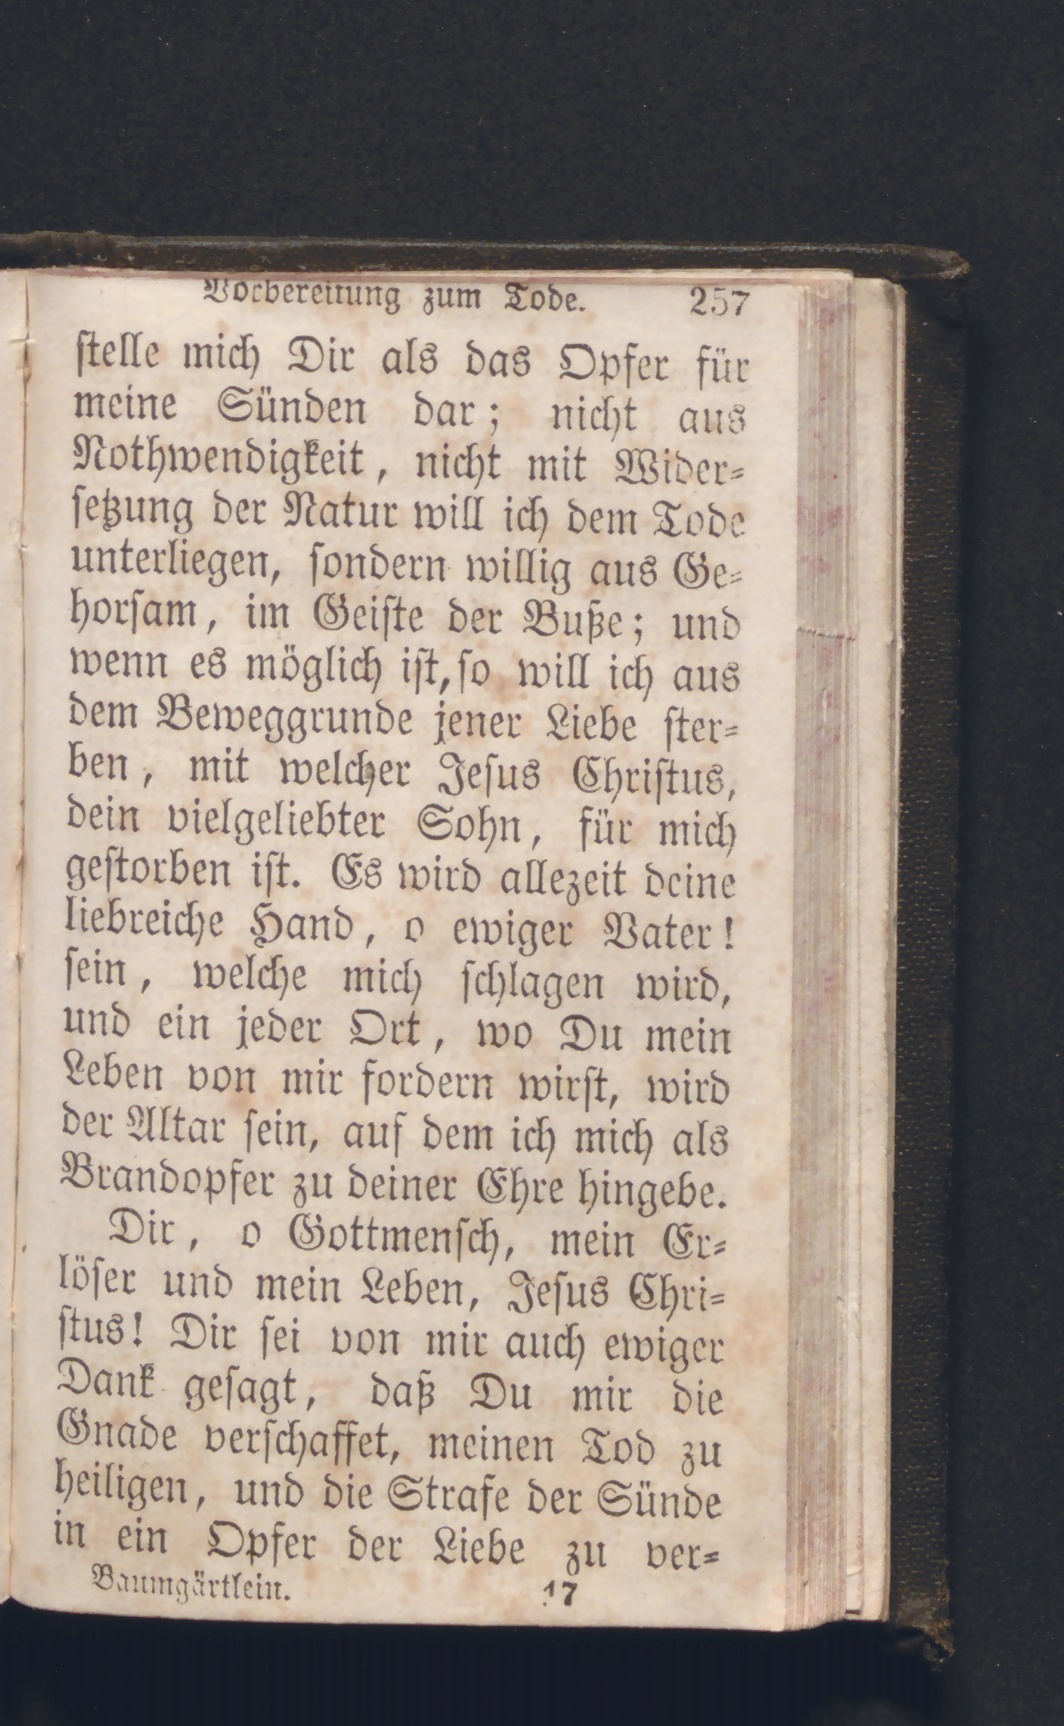 Vorbereitung zum Tode. 257
stelle mich Dir als das Opfer für
meine Sünden dar; nicht aus
Nothwendigkeit, nicht mit Wider-
setzung der Natur will ich dem Tode
unterliegen, sondern willig aus Ge-
horsam, im Geiste der Buße; und
wenn es möglich ist, so will ich aus
dem Beweggrunde jener Liebe ster-
ben, mit welcher Jesus Christus,
dein vielgeliebter Sohn, für mich
gestorben ist. Es wird allezeit deine
liebreiche Hand, o ewiger Vater!
sein, welche mich schlagen wird,
und ein jeder Ort, wo Du mein
Leben von mir fordern wirst, wird
der Altar sein, auf dem ich mich als
Brandopfer zu deiner Ehre hingebe.
Dir, o Gottmensch, mein Er-
löser und mein Leben, Jesus Chri-
stus! Dir sei von mir auch ewiger
Dank gesagt, daß Du mir die
Gnade verschaffet, meinen Tod zu
heiligen, und die Strafe der Sünde
in ein Opfer der Liebe zu ver-
Baumgärtlein. 17